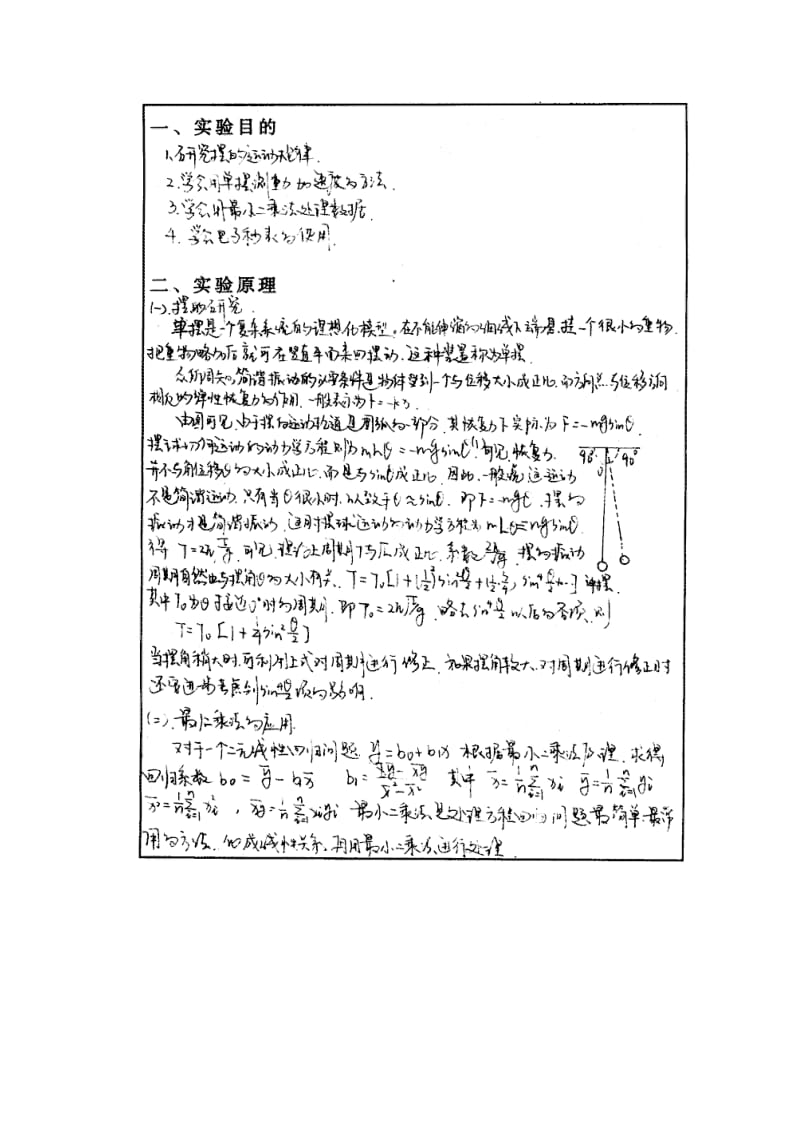 一、实验目的
1.研究摆的运动规律.
2.学会用单摆测重力加速度的方法.
3.学会用最小二乘法处理数据.
4.学会电子秒表的使用.
二、实验原理
(一).摆的研究.
单摆是一个复杂系统的理想化模型。在不能伸缩的细线下端悬挂一个很小的重物.
把重物略 后就可在竖直平面来回摆动.这种装置称为单摆.
众所周知,简谐振动的必要条件是物体受到一个与位移大小成正比,而方向总与位移方向
相反的弹性恢复力的作用.一般表示为F=-kx
由图可见,由于摆的运动轨道是圆弧的一部分,其恢复力实际为F=-mgsinθ.
摆球切向运动的动力学方程则为mLθ=-mgsinθ.可见,恢复力
并不与角位移θ的大小成正比,而是与sinθ成正比.因此,一般说这运动
不是简谐运动.只有当θ很小时,以致于θ≈sinθ.即F=-mgθ.摆的
振动才是简谐振动.这时摆球运动的动力学方程为mLθ=-mgsinθ.
得 T=2π√ 可见,理论上周期T与√L成正比,系数 摆的振动
周期自然也与摆角θ的大小有关.T=T₀[1+(1/2)²sin²θ/2+(1/2·3/4)²sin⁴θ/2+…] 单摆
其中T₀为θ接近0°时的周期,即T₀=2π√L/g.略去sin⁴θ/2以后的各项,则
T=T₀[1+1/4sin²θ/2]
当摆角稍大时,可利用上式对周期进行修正.如果摆角较大,对周期进行修正时
还要进一步考虑到sin⁴θ/2项的影响.
(二).最小二乘法的应用.
对于一个二元线性回归问题 y=b₀+b₁x 根据最小二乘法原理,求得
回归系数 b₀=ȳ-b₁x̄ b₁= 其中 x̄=1/n∑xᵢ ȳ=1/n∑yᵢ
x̄²=1/n∑xᵢ², x̄y=1/n∑xᵢyᵢ 最小二乘法是处理方程回归问题最简单最常
用的方法. 成线性关系,再用最小二乘法进行处理
90° 90°
0